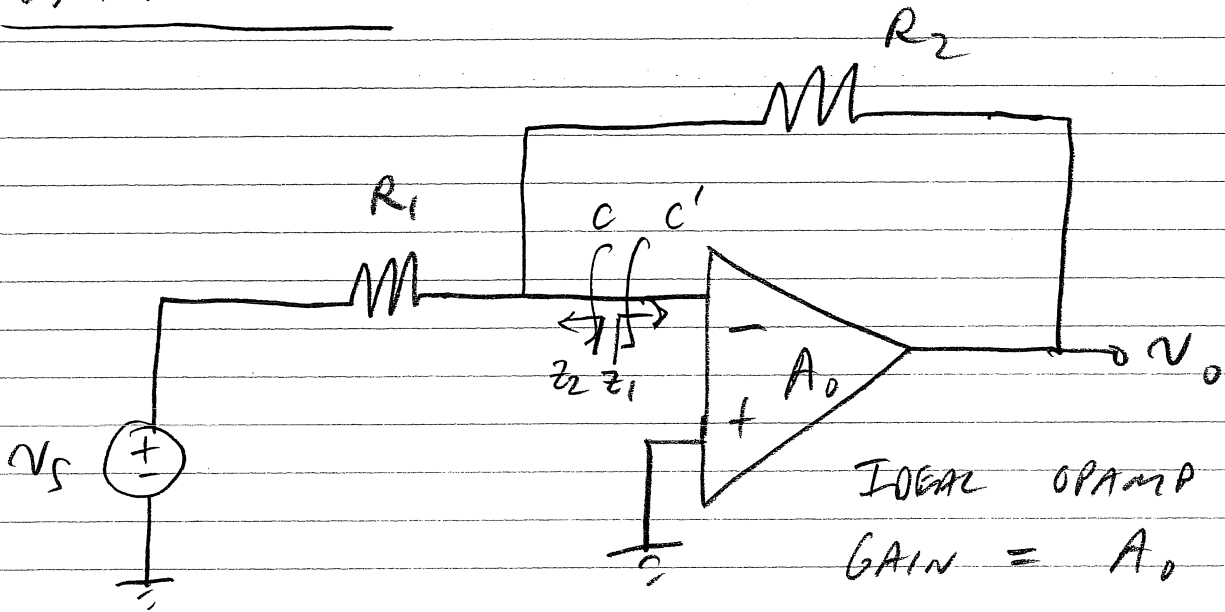 R2
R1
C C'
Z2 Z1
-
A0
+
+
-
vs
vo
IDEAL OPAMP
GAIN = A0